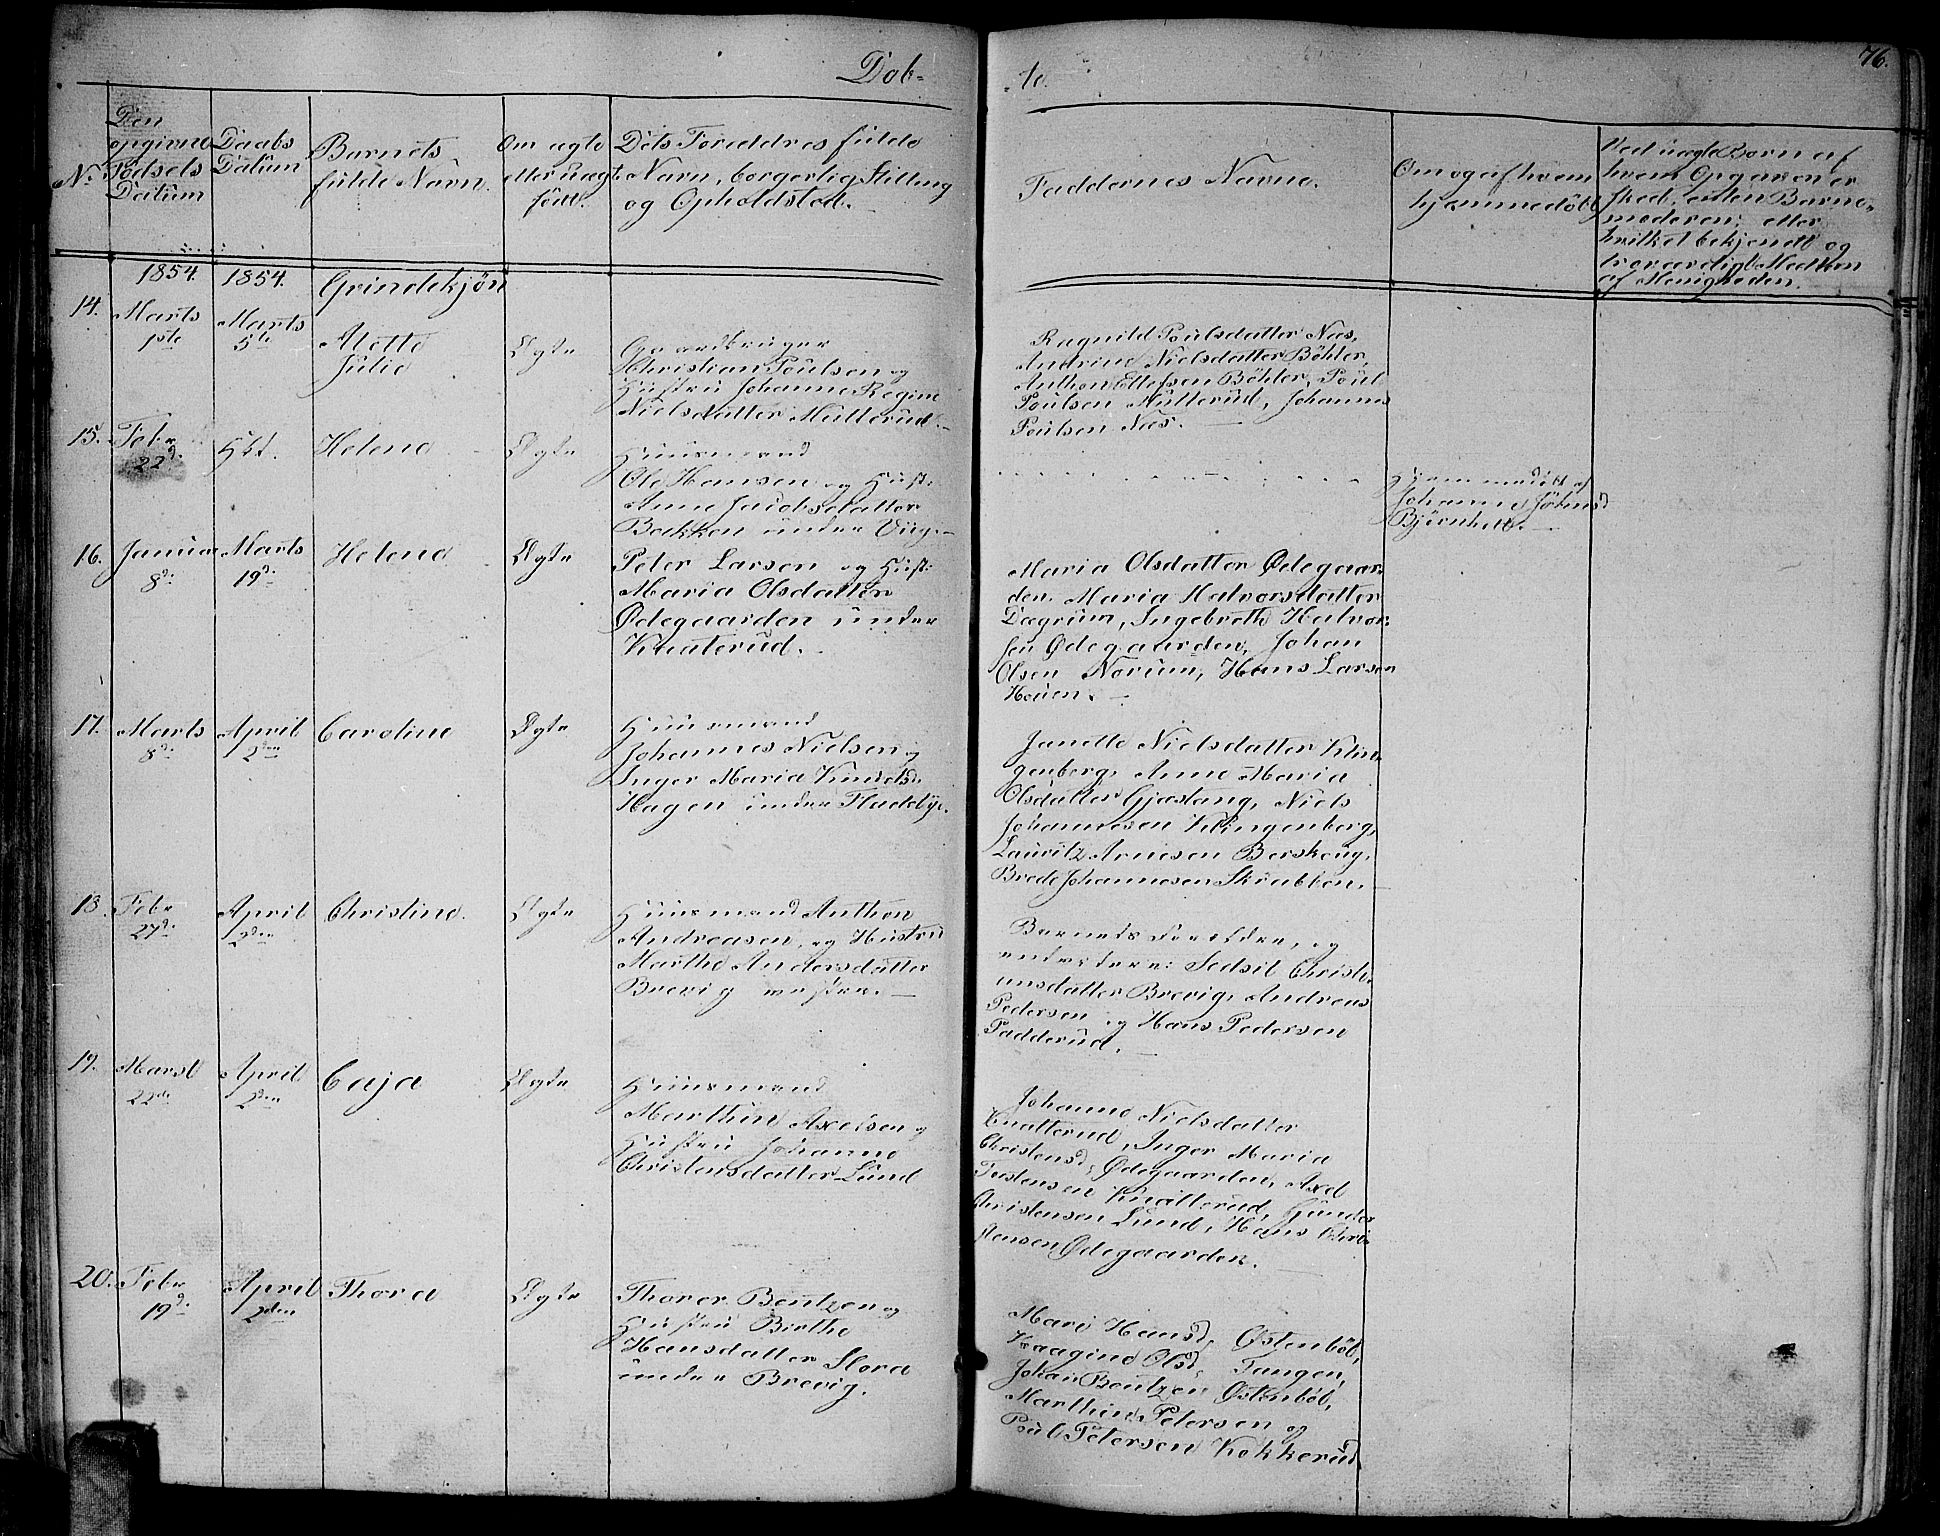 76.
Døb-
te.
No
Den
opgivne
Fødsels
Datum
Daabs
Datum
Barnets
fulde Navn.
Om ægte
eller uægte
født.
Dets Forældres fulde
Navn, borgerlig Stilling
og Opholdsted.
Faddernes Navne.
Om og af hvem
hjemmedøbt
Ved uægte Børn af
hvem Opgaven er
skeed, enten Barne-
moderen, eller
hvilket bekjendt og
troværdigt Medlem
af Menigheden.
1854.
1854.
Qvindekjøn
14.
Marts
1ste
Marts
5te
Mette
Julie
Ægte
Gaardbruger
Christian Poulsen og
Hustru Johanne Regine
Nielsdatter Mutterud.
Ragnild Poulsdatter Næs,
Andrine Nielsdatter Böhler,
Anthon Ellefsen Böhler, Poul
Poulsen Mutterud, Johannes
Poulsen Næs.
15.
Febr
22d.
Helene
Ægte
Huusmand
Ole Hansen og Hust:
Anne Jacobsdatter
Bakken under Viig.
Hjemmedöbt af
Johanne Johnsd
Björnholt.
16.
Januar
8d:
Marts
19d:
Helene
Ægte
Peter Larsen og Hust:
Maria Olsdatter
Ødegaarden under
Knaterud.
Maria Olsdatter Ødegaar-
den, Maria Halvorsdatter
Dægrum, Ingebreth Halvor-
sen Ødegaarden, Johan
Olsen Norum, Hans Larsen
Houen.
17.
Marts
8d:
April
2den
Caroline
Ægte
Huusmand
Johannes Nielsen og
Inger Maria Knudsd.
Hagen under Fladebye.
Janette Nielsdatter Klin-
genberg, Anne Maria
Olsdatter Gjæstang, Niels
Johannesen Klingenberg,
Lauritz Arnesen Berskoug,
Brede Johannesen Skrubben.
18.
Febr
27d:
April
2den
Christine.
Ægte
Huusmand Anthon
Andreasen, og Hustru
Marthe Andersdatter
Brevig vestre.
Barnets Forældre, og
endvidere: Sedsil Christi-
ansdatter Brevig, Andreas
Pedersen og Hans Pedersen
Padderud.
19.
Marst
22de
April
2den
Caja
Ægte
Huusmand
Marthin Axelsen og
Hustru Johanne
Christensdatter Lund
Johanne Nielsdatter
Knatterud, Inger Maria
Christensd, Ødegaarden, Axel
Tostensen Knatterud, Gunder
Christensen Lund, Hans Chri-
stensen Ødegaarden.
20.
Febr
19d.
April
2den
Thora
Ægte
Thorer Bentzen og
Hustru Birthe
Hansdatter Stora
under Brevig.
Mari Hansd, Østenböl,
Kaagine Olsd, Tangen,
Johan Bentzen Østenböl,
Marthin Petersen og
Poul Petersen Kokkerud